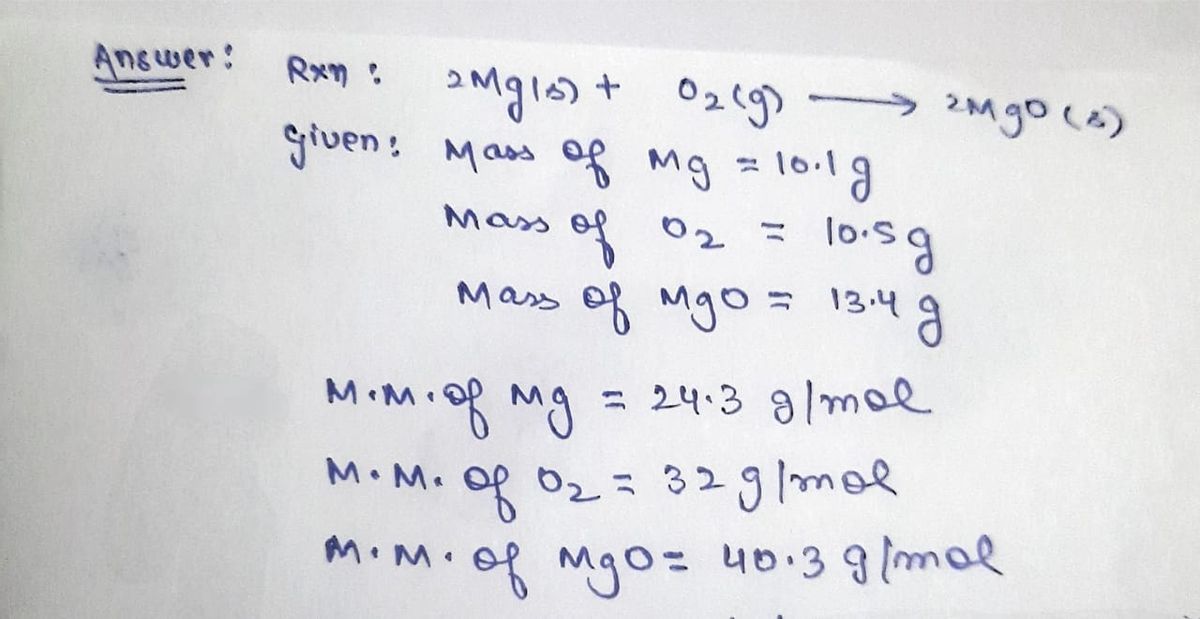 Answer: Rxn: 2Mg(s) + O2(g) → 2MgO(s)
Given: Mass of Mg = 10.1 g
Mass of O2 = 10.5 g
Mass of MgO = 13.4 g
M.M. of Mg = 24.3 g/mol
M.M. of O2 = 32 g/mol
M.M. of MgO = 40.3 g/mol